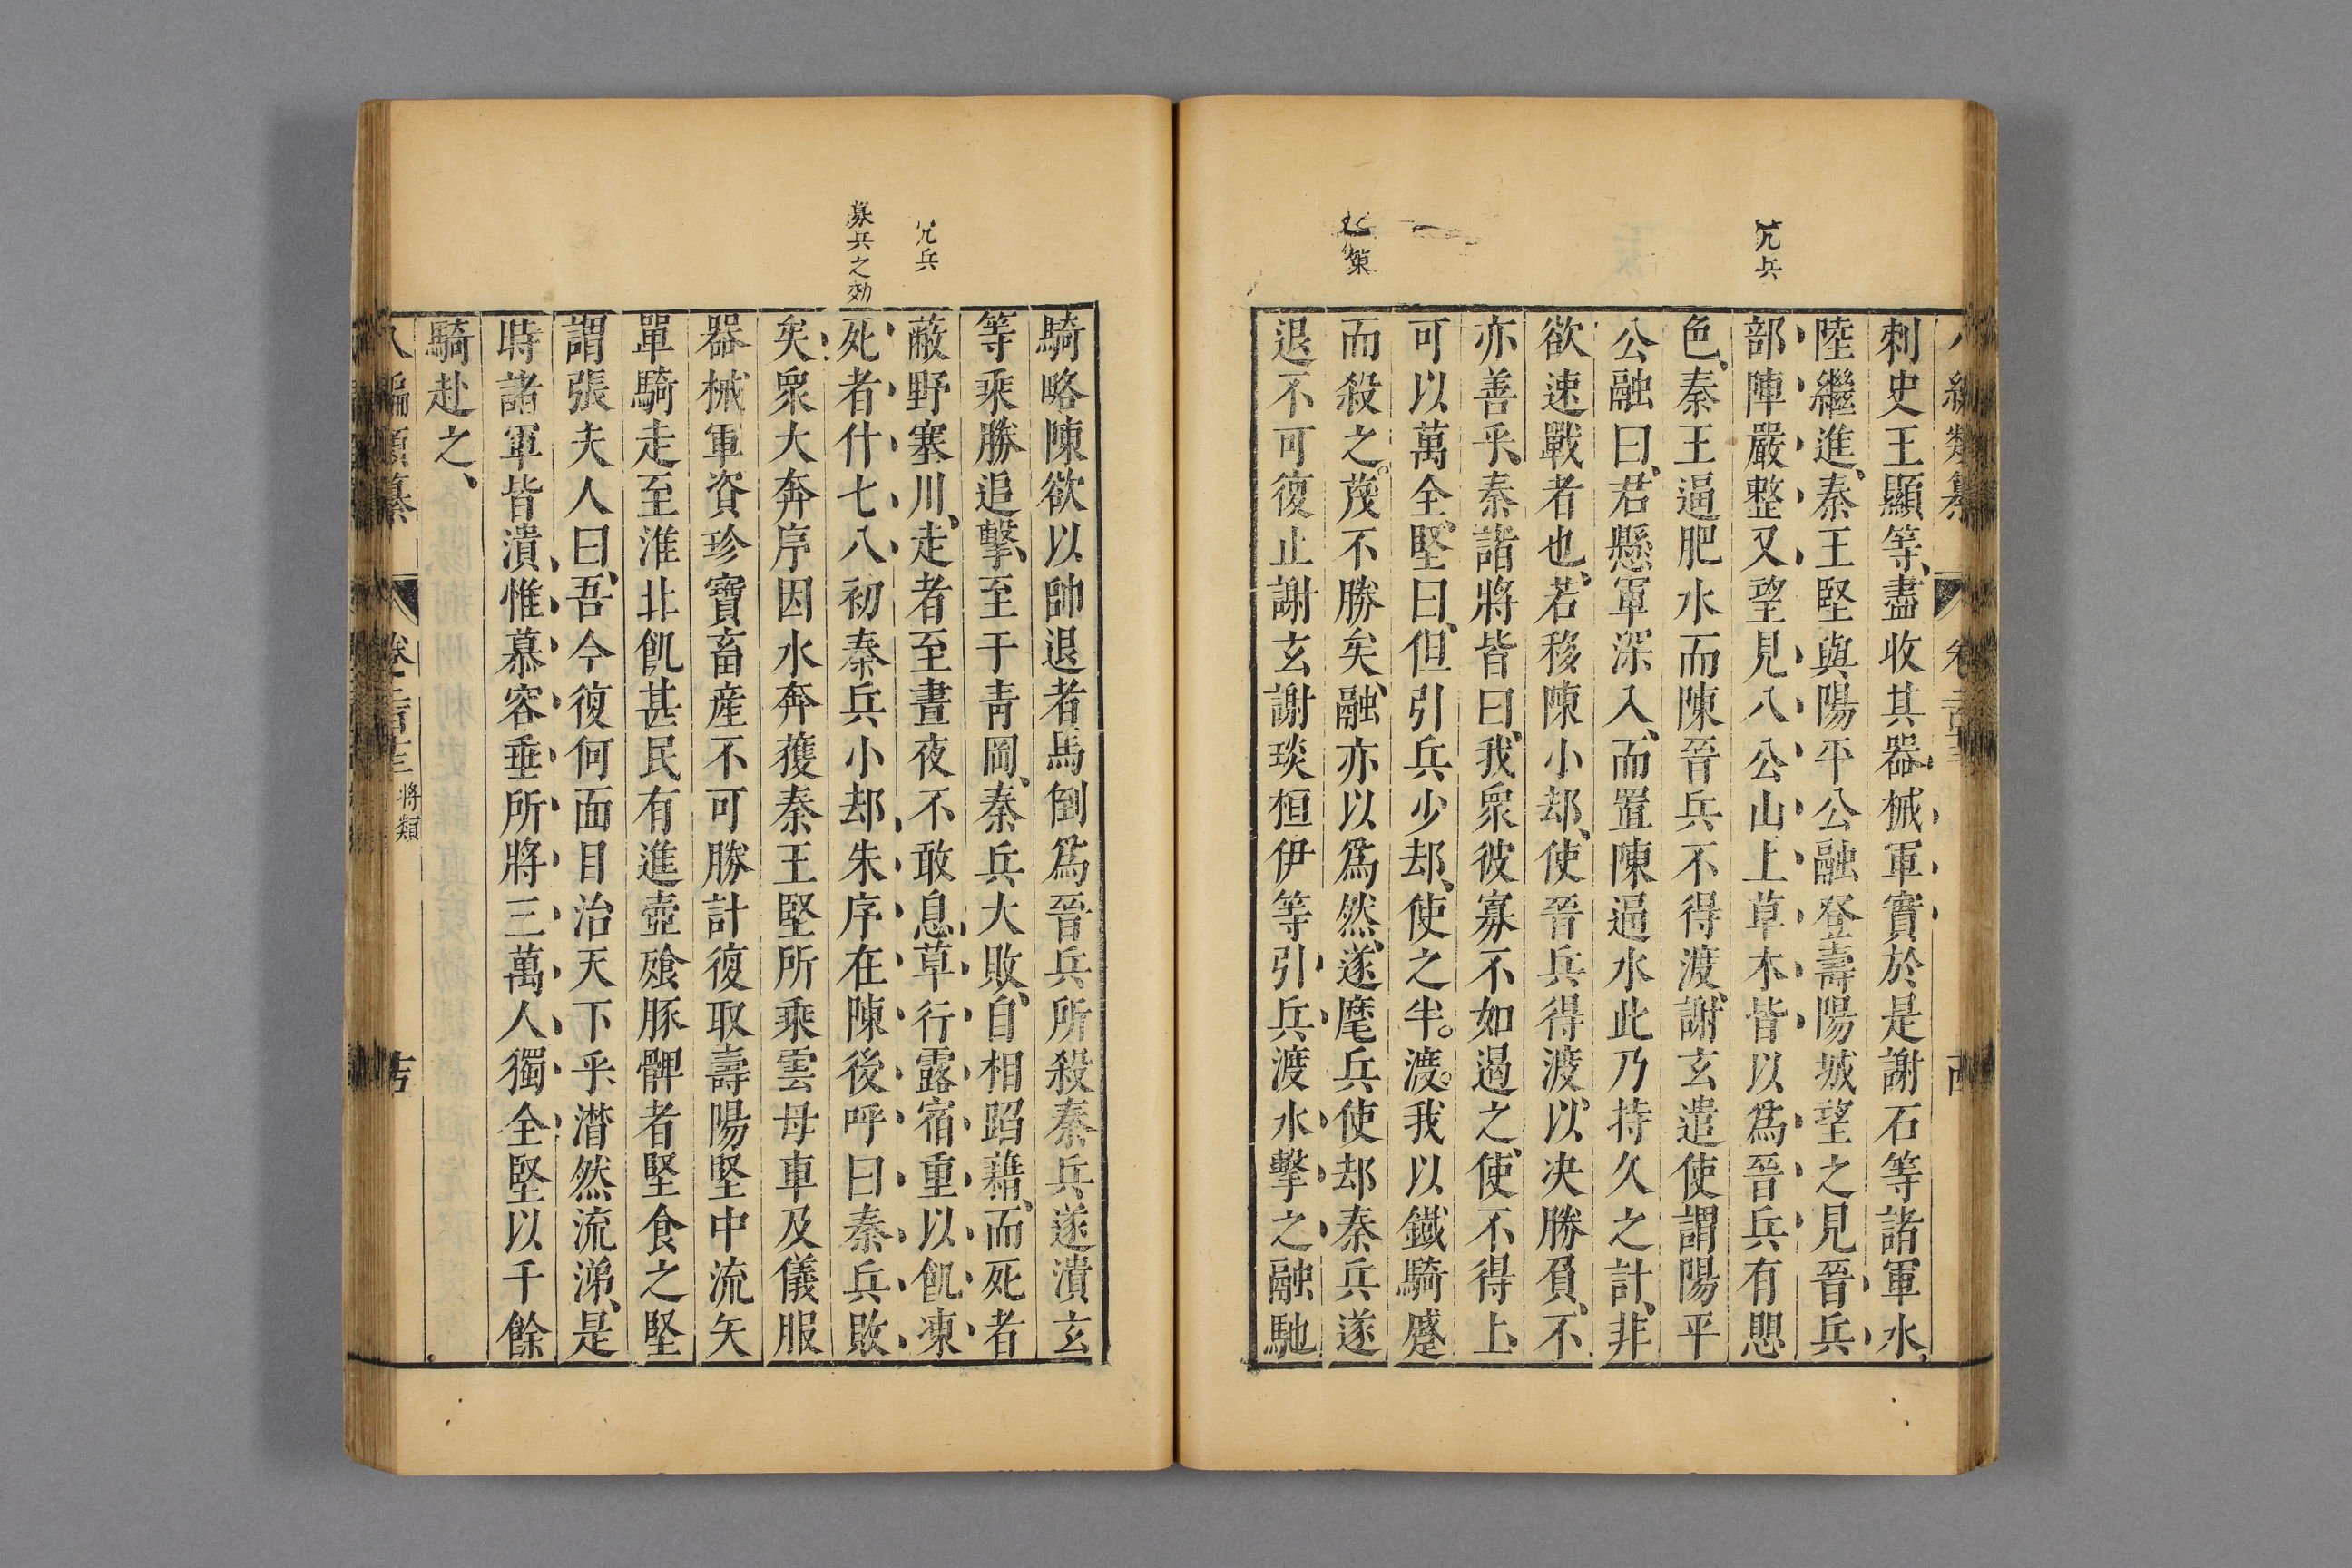 兵
刺史王顯等、盡收其器械軍實於是謝石等諸軍水、
陸繼進、秦王堅與陽平公融登壽陽城望之見晉兵
部陣嚴整又望見八公山上草木皆以爲晉兵有懼
色、秦王逼肥水而陳晉兵不得渡、謝玄遣使謂陽平
公融曰、君懸軍深入、而置陳逼水此乃持久之計、非
欲速戰者也、若移陳小却、使晉兵得渡、以決勝負、不
亦善乎、秦諸將皆曰、我衆彼寡不如遏之、使不得上、
可以萬全、堅曰、但引兵少却、使之半。渡。我以鐵騎蹙
策
而殺之。蔑不勝矣、融亦以爲然、遂麾兵使却秦兵遂
退不可復止謝玄謝琰桓伊等引兵渡水擊之融馳
騎略陳欲以帥退者馬倒爲晉兵所殺秦兵遂潰玄
等乘勝追擊、至于靑岡、秦兵大敗、自相蹈藉、而死者
兵
蔽野塞川、走者至晝夜不敢息、草行露宿重以飢凍
兵之効
死者什七八初秦兵小却朱序在陳後呼曰秦兵敗
矣、衆大奔序因水奔獲秦王堅所乘雲母車及儀服
器械軍資珍寶畜産不可勝計復取壽陽堅中流矢
單騎走至淮北飢甚民有進壺飧豚髀者堅食之堅
謂張夫人曰、吾今復何面目治天下乎潸然流涕、是
時諸軍皆潰、惟慕容垂所將三萬人獨全堅以千餘
騎赴之、
編類纂
將類